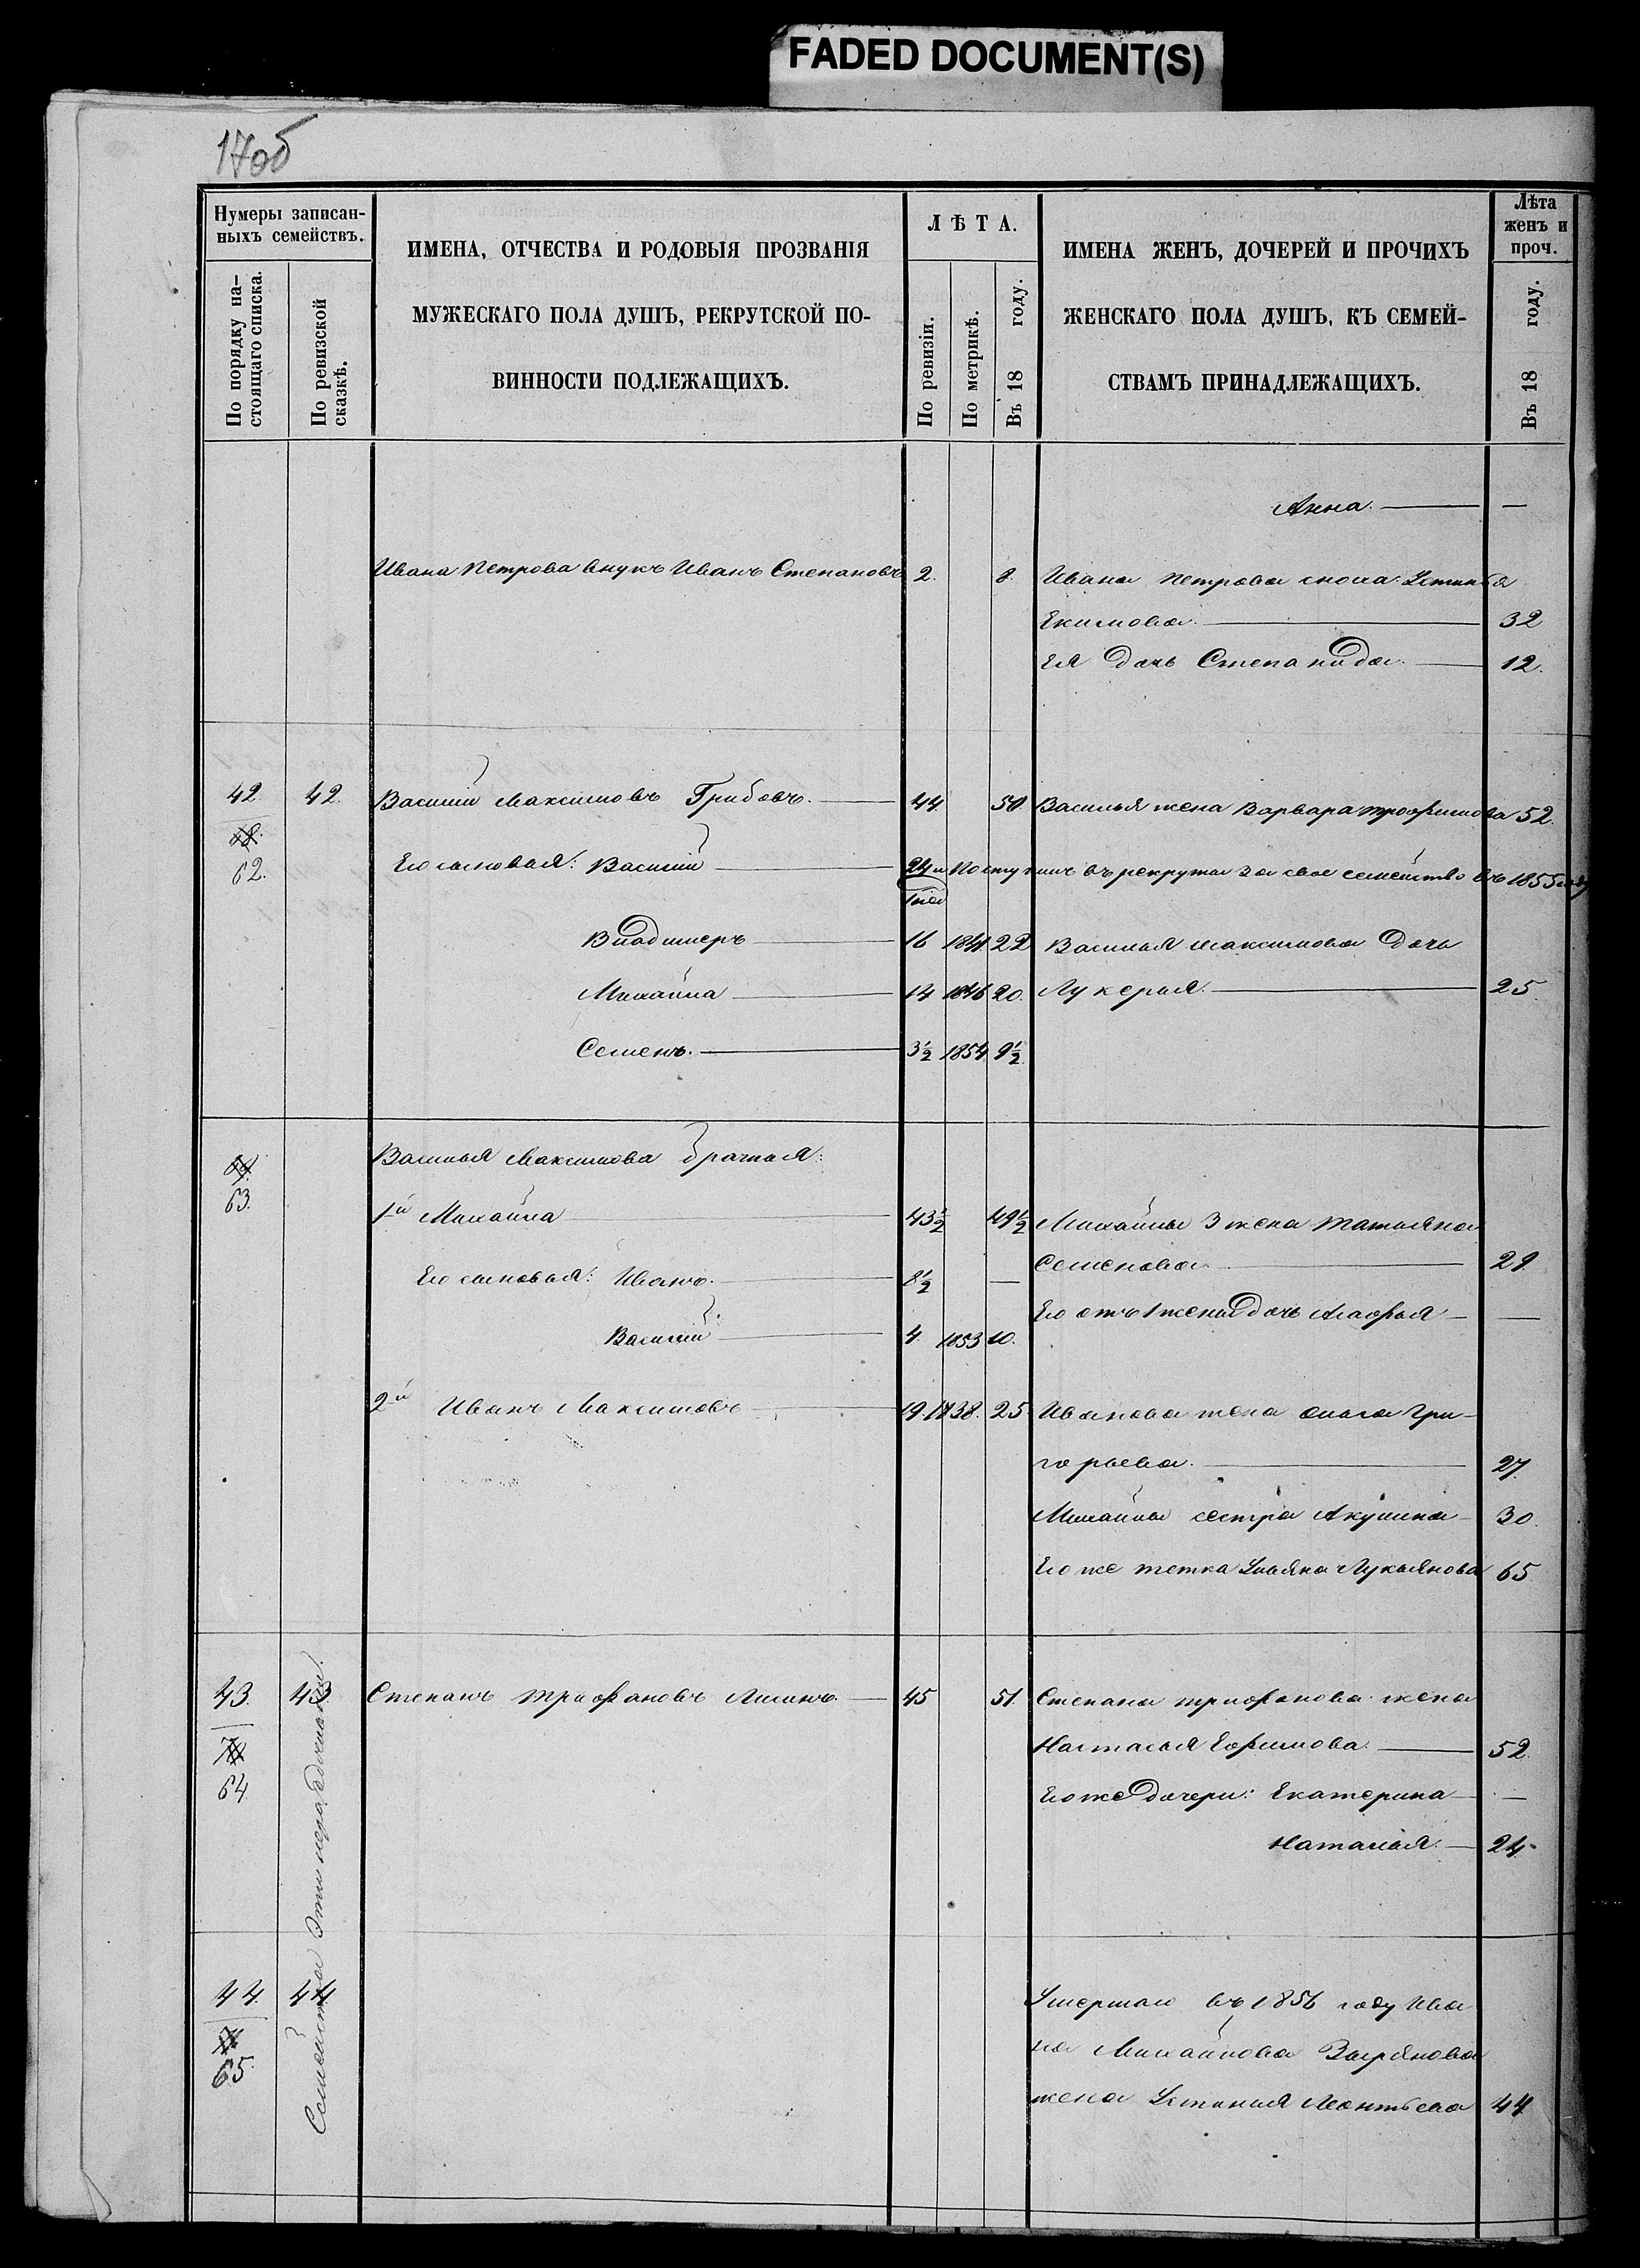 FADED DOCUMENT(S)
17об
Нумеры записан-
ныхъ семействъ.
По порядку на-
стоящаго списка.
По ревизской
сказкѣ.
ИМЕНА, ОТЧЕСТВА И РОДОВЫЯ ПРОЗВАНІЯ
МУЖЕСКАГО ПОЛА ДУШЪ, РЕКРУТСКОЙ ПО-
ВИННОСТИ ПОДЛЕЖАЩИХЪ.
ЛѢТА.
По ревизіи.
По метрикѣ.
Въ 18 году.
ИМЕНА ЖЕНЪ, ДОЧЕРЕЙ И ПРОЧИХЪ
ЖЕНСКАГО ПОЛА ДУШЪ, КЪ СЕМЕЙ-
СТВАМЪ ПРИНАДЛЕЖАЩИХЪ.
Лѣта
женъ и
проч.
Въ 18 году.
Анна. —
Ивана Петрова внукъ Иванъ Степановъ 2. 8. Ивана Петрова сноха Устинья
Екимова. 32
Ея дочь Степанида. 12.
42. 42. Василій Максимовъ Грибовъ. 44. 50. Василья жена Варвара Трофимова 52.
62. Его сыновья: Василій 24 и Поступилъ въ рекруты за свое семейство въ 1855 году
Владимеръ 16 1841 22 Василья Максимова дочь
Михайла 14 1846 20. Лукерья. 25.
Семенъ. 3½ 1854 9½
63. Василья Максимова братья:
1й Михайла 43½ 49½ Михайлы 3 жена Татьяна
Семенова. 29.
Его сыновья: Иванъ. 8½ —
Его отъ 1 жены дочь Агафья —
Василій 4. 1853 10.
2й Иванъ Максимовъ 19. 1838. 25 Иванова жена Ольга Гри-
горьева. 27.
Михайлы сестра Акулина 30.
Его же тетка Ульяна Лукьянова 65.
43. 43. Степанъ Трифановъ Лисинъ. 45 51. Степана Трифанова жена
64. Настасья Ефимова. 52.
Его же дочери: Екатерина —
Наталья. 24.
44. 44 Умершаго въ 1856 году Ива
65. на Михайлова жена Устинья Леонтьева 44
Семейства Эти